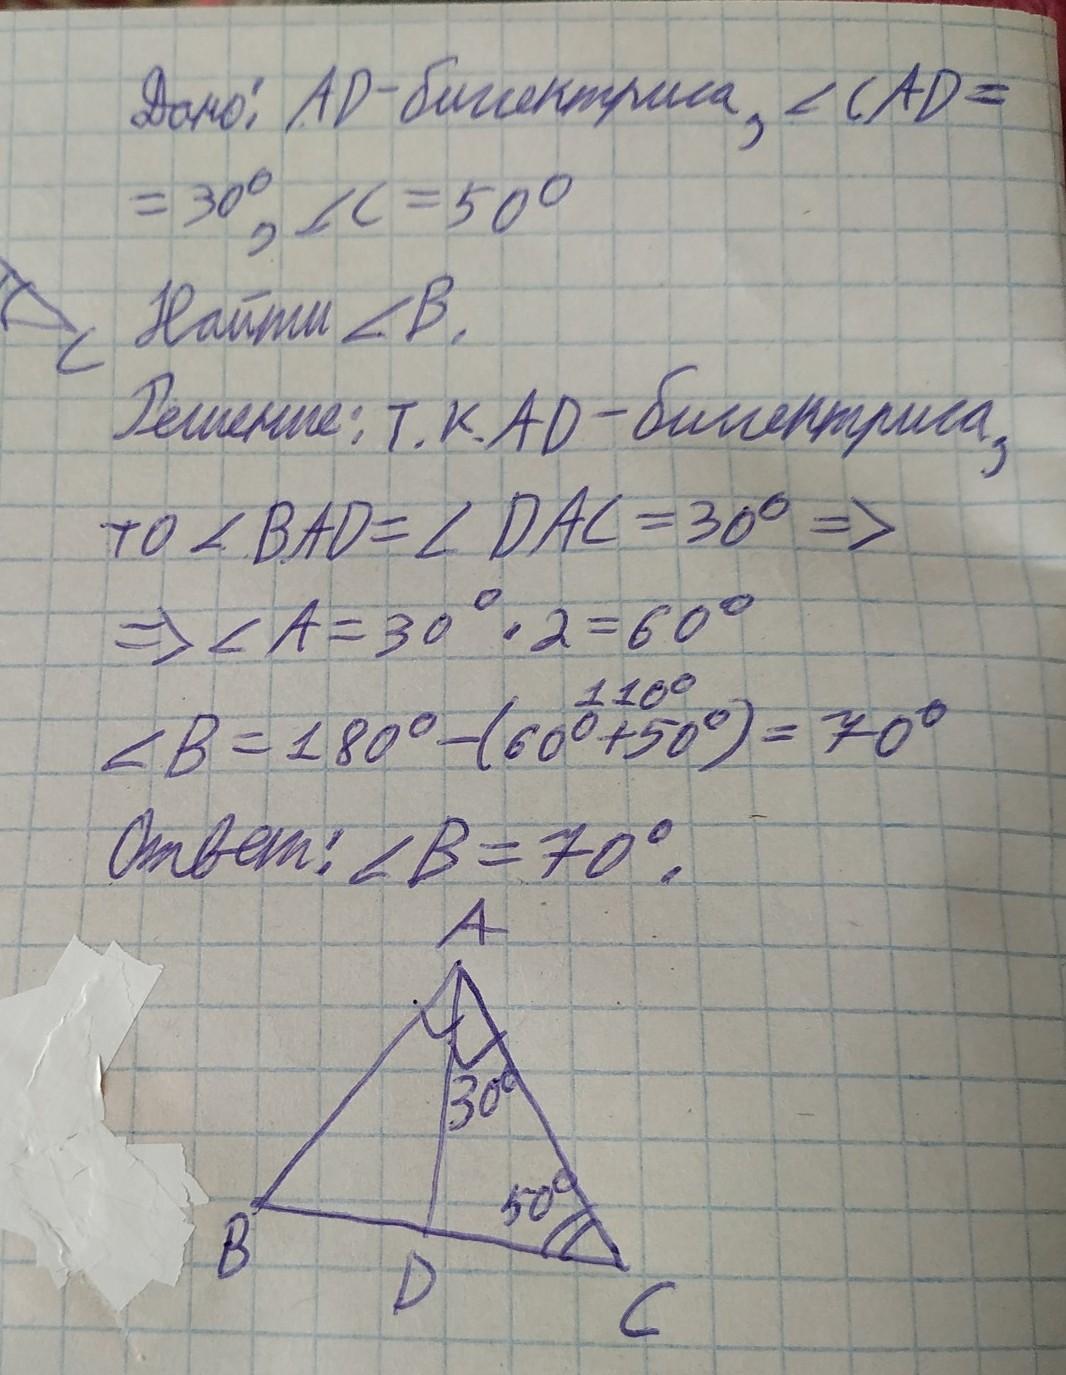 Дано: AD-биссектриса, ∠CAD=
=30°, ∠C=50°
C
Найти ∠B.
Решение: т.к. AD-биссектриса,
то ∠BAD=∠DAC=30° =>
=> ∠A=30°·2=60°
110°
∠B=180°-(60°+50°)=70°
Ответ: ∠B=70°.
A
30°
50°
B
D
C